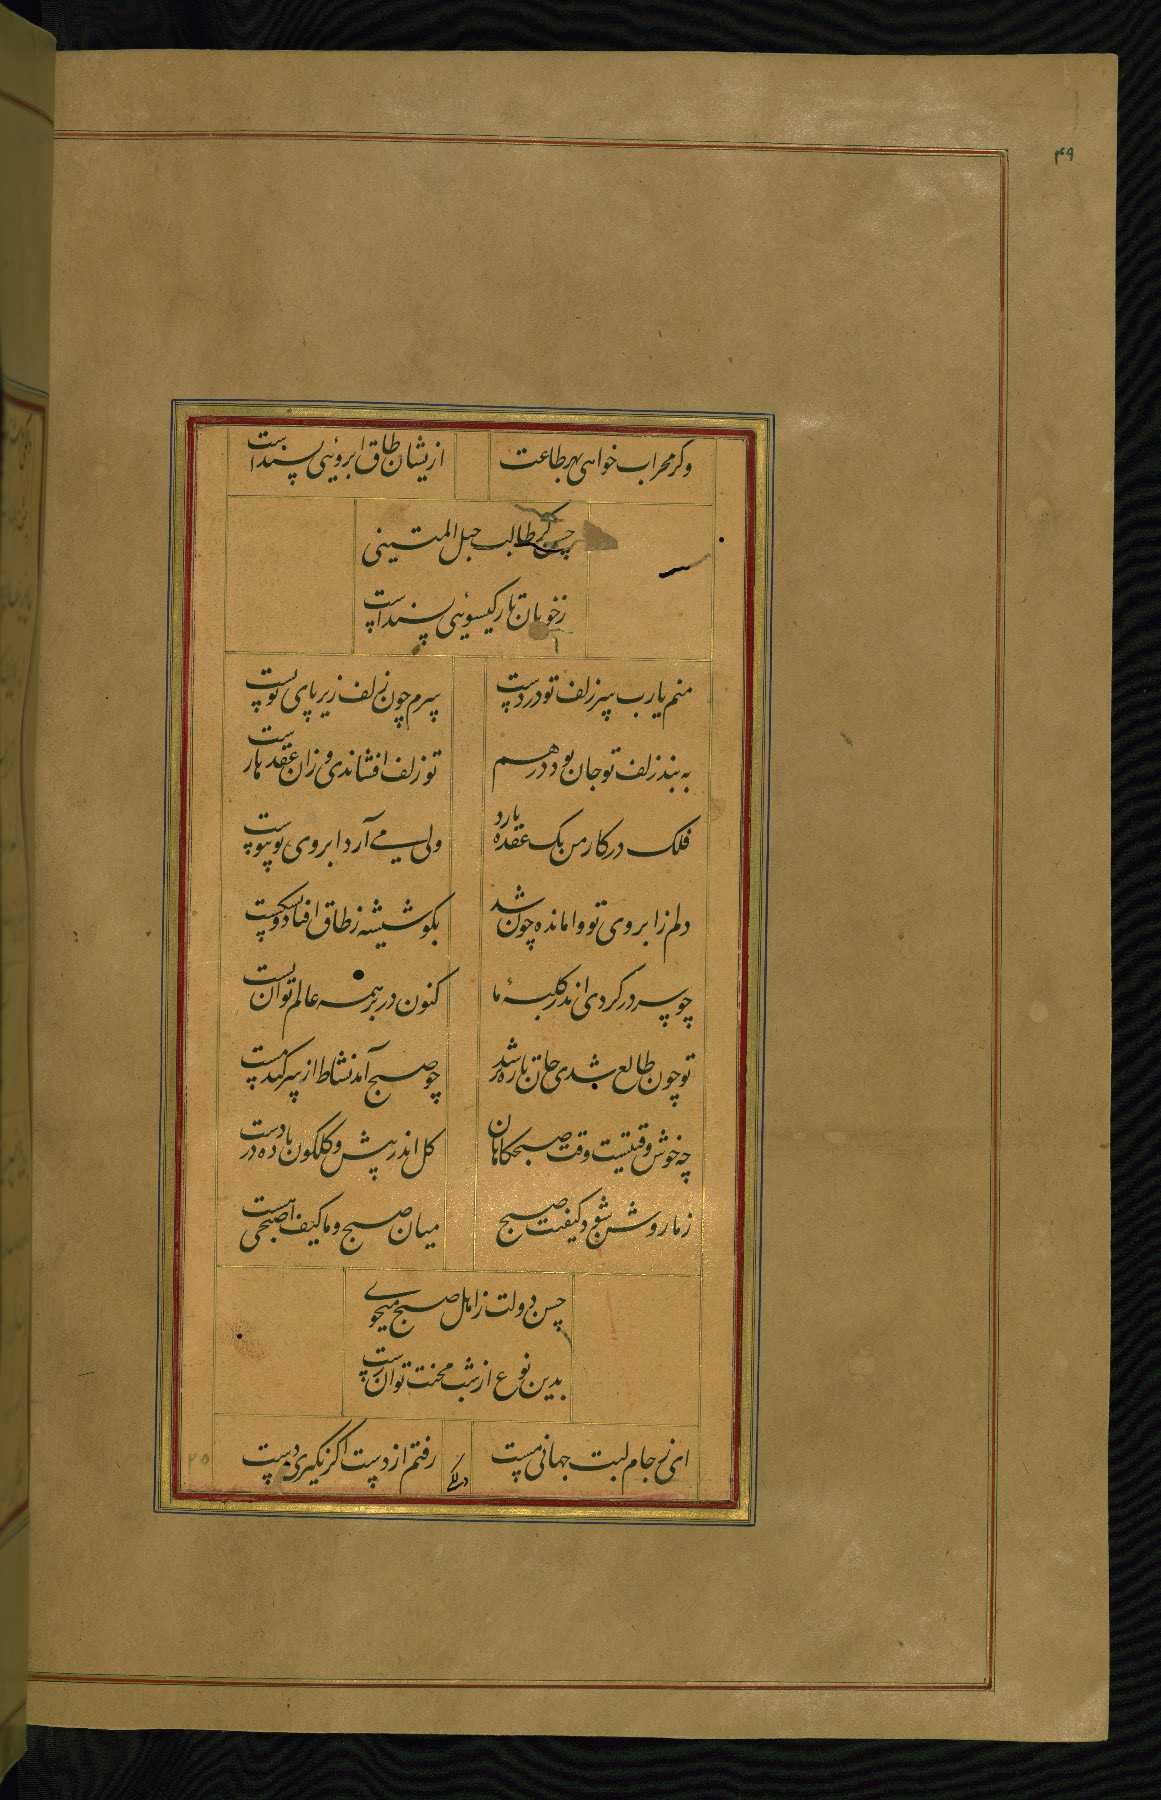 ۴۹
وکر محراب خواهی بهر طاعت
ازیشان طاق ابروئی پسنداست
حسن کر طالب حبل المتینی
زخوبان تار کیسوئی پسنداست
منم یارب سر زلف تو در دست
سرم چون زلف زیر پای تو پست
به بند زلف تو جان بود درهم
تو زلف افشاندی وزان عقدها رست
فلک در کار من یک عقده بارد
ولی می آرد ابروی تو پیوست
دلم زابروی تو وامانده چون شد
بکو شیشه ز طاق افتاد و بشکست
چو سر در کردی اندر کلبهٔ ما
کنون در بر همه عالم توان بست
تو چون طالع شدی جان تازه تر شد
چو صبح آمد نشاط از سر کند مست
چه خوش وقتیست وقت صبحکاهان
کل اندر پیش و کلکون باده در دست
زما روشن شود کیفیت صبح
میان صبح و ما کیف اصبحی هست
حسن دولت ز اهل صبح میجوی
بدین نوع از شب محنت توان رست
دیگر
ای ز جام لبت جهانی مست
رفتم از دست اکر نکیری دست
۲۵